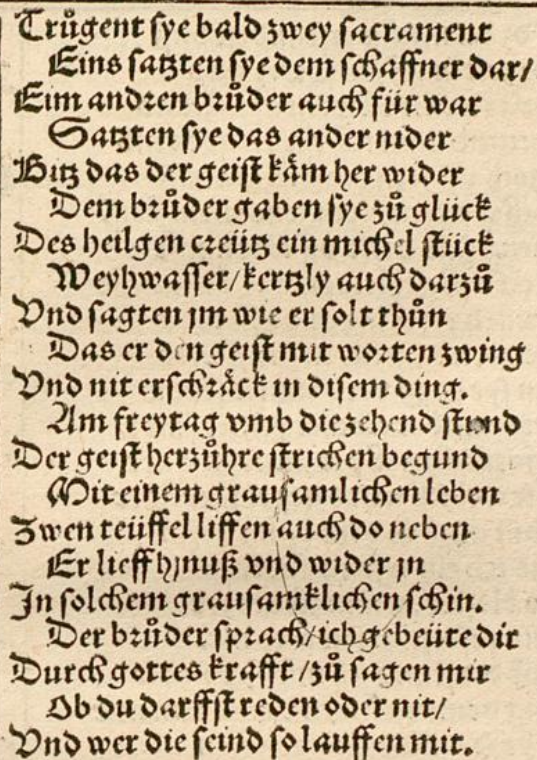 Trůgent sye bald zwey sacrament
Eins satzten sye dem schaffner dar/
Eim andren brůder auch für war
Satzten sye das ander nider
Bitz das der geist käm her wider
Dem brůder gaben sye zů glück
Des heilgen creütz ein michel stück
Weyhwasser/ kertzly auch darzů
Vnd sagten jm wie er solt thůn
Das er den geist mit worten zwing
Vnd nit erschräck in disem ding.
Am freytag vmb die zehend stund
Der geist herzůhre strichen begund
Mit einem grausamlichen leben
Zwen teüffel liffen auch do neben
Er lieff hjnuß vnd wider jn
In solchem grausamklichen schin.
Der brůder sprach/ ich gebeüte dir
Durch gottes krafft /zů sagen mir
Ob du darffst reden oder nit/
Vnd wer die seind so lauffen mit.